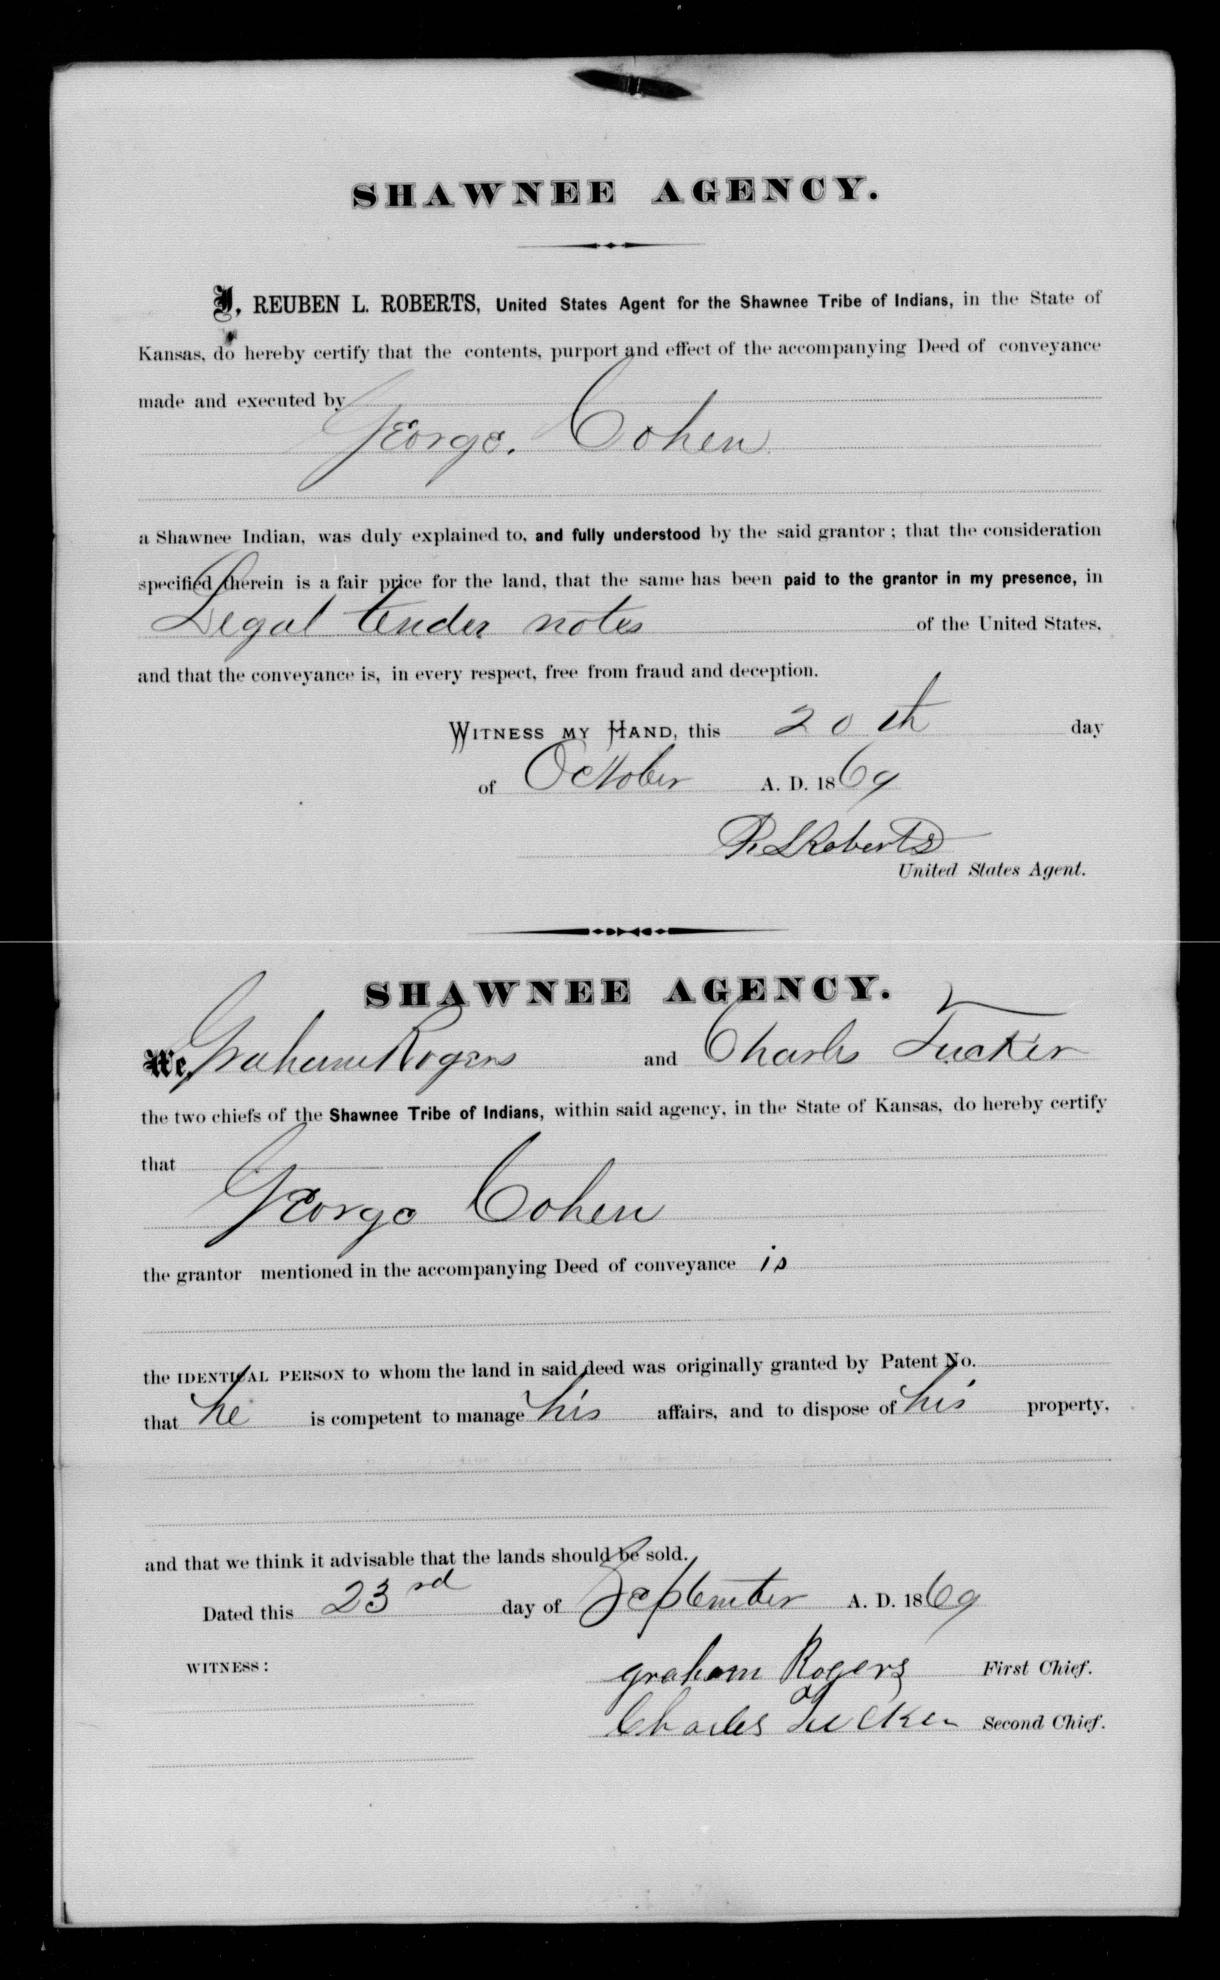 SHAWNEE AGENCY.
I, REUBEN L. ROBERTS, United States Agent for the Shawnee Tribe of Indians, in the State of
Kansas, do hereby certify that the contents, purport and effect of the accompanying Deed of conveyance
made and executed by
George. Cohen
a Shawnee Indian, was duly explained to, and fully understood by the said grantor; that the consideration
specified therein is a fair price for the land, that the same has been paid to the grantor in my presence, in
Legal tender notes of the United States,
and that the conveyance is, in every respect, free from fraud and deception.
WITNESS MY HAND, this 20th day
of October A. D. 1869
R. L Roberts
United States Agent.
SHAWNEE AGENCY.
We, Graham Rogers and Charles Tucker
the two chiefs of the Shawnee Tribe of Indians, within said agency, in the State of Kansas, do hereby certify
that
George Cohen
the grantor mentioned in the accompanying Deed of conveyance is
the IDENTICAL PERSON to whom the land in said deed was originally granted by Patent No.
that he is competent to manage his affairs, and to dispose of his property,
and that we think it advisable that the lands should be sold.
Dated this 23rd day of September A. D. 1869
WITNESS: graham Rogers First Chief.
Charles Tucker Second Chief.